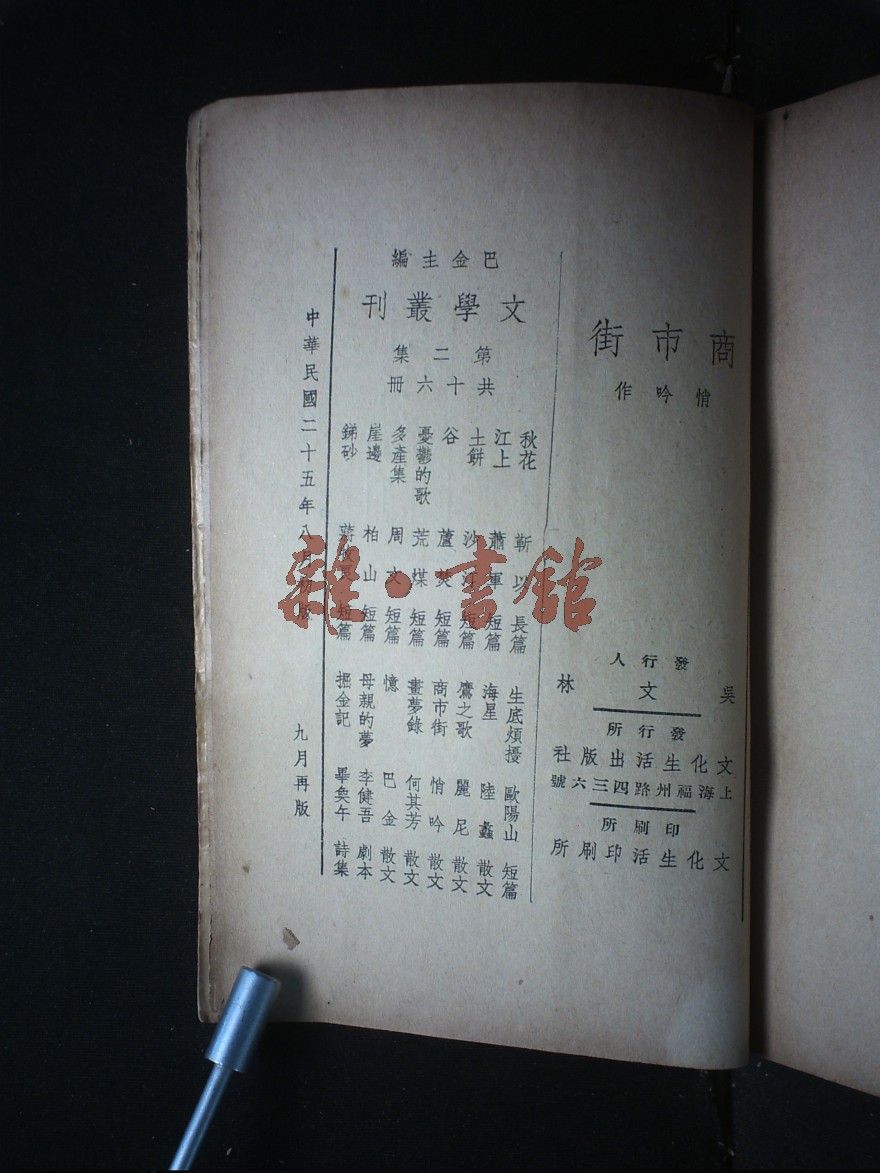 商市街
悄吟作
發行人
吳文林
發行所
文化生活出版社
上海福州路四三六號
印刷所
文化生活印刷所
巴金主編
文學叢刊
第二集
共十六冊
秋花 靳以 長篇 生底煩擾 歐陽山 短篇
江上 蕭軍 短篇 海星 陸蠡 散文
土餅 沙汀 短篇 鷹之歌 麗尼 散文
谷 蘆焚 短篇 商市街 悄吟 散文
憂鬱的歌 荒煤 短篇 畫夢錄 何其芳 散文
多產集 周文 短篇 憶 巴金 散文
崖邊 柏山 短篇 母親的夢 李健吾 劇本
銻砂 蔣牧良 短篇 掘金記 畢奐午 詩集
中華民國二十五年八月初版 九月再版
雜·書館